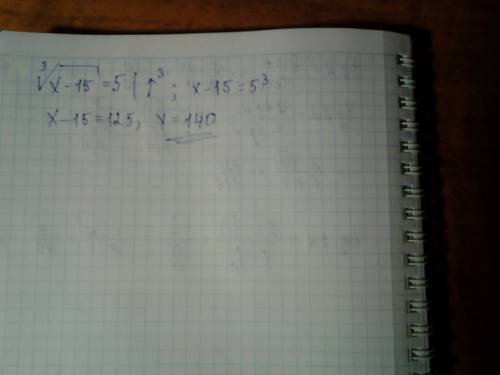 ∛(x-15) = 5 | ↑³ ; x-15 = 5³
x-15 = 125, x = 140